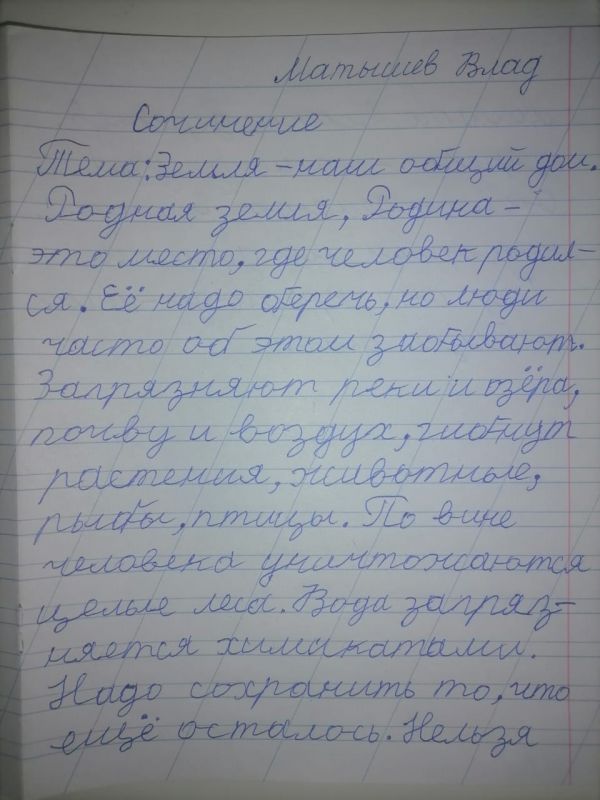 Матышев Влад
Сочинение
Тема: Земля - наш общий дом.
Родная земля, Родина -
это место, где человек родал-
ся. Её надо беречь, но люди
часто об этом забывают.
Загрязняют реки и озёра,
почву и воздух, гибнут
растения, животные,
рыбы, птицы. По вине
человека уничтожаются
целые леса. Вода загряз-
няется химикатами.
Надо сохранить то, что
ещё осталось. Нельзя